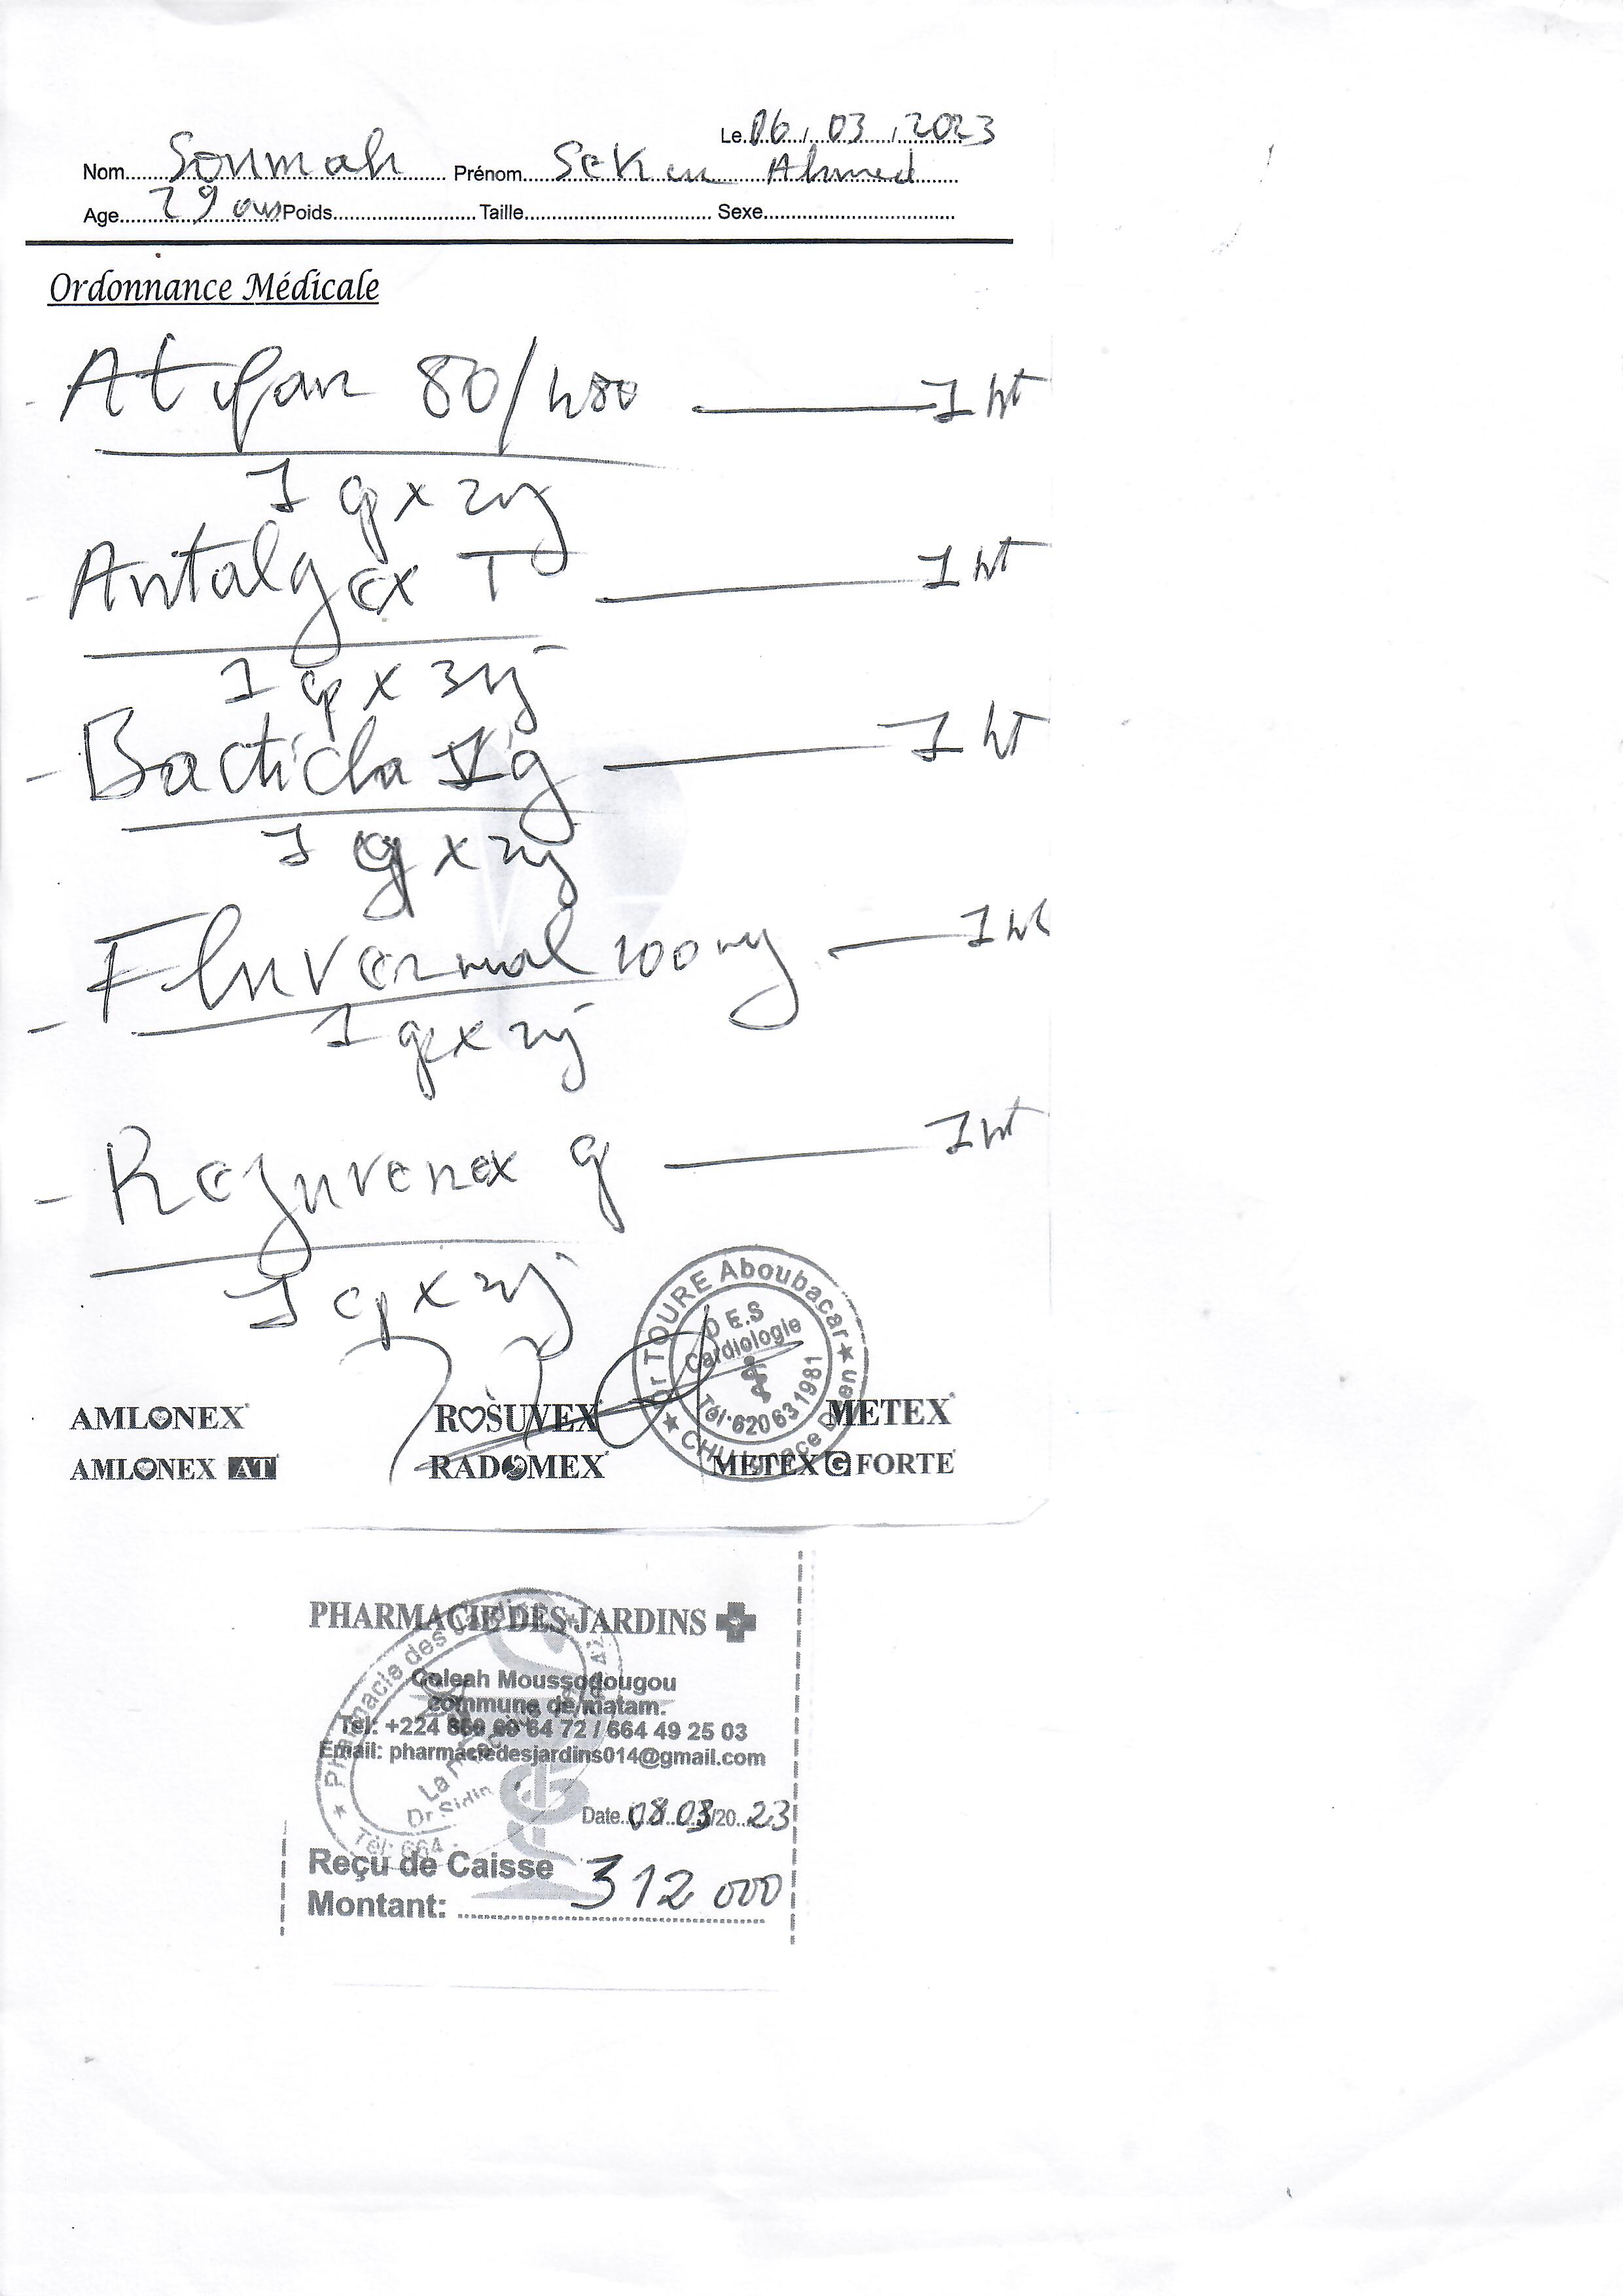 Le 06/03/2023
Nom Soumah Prénom Sekou Ahmed
Age 29 ans Poids Taille Sexe
Ordonnance Médicale
- At 80/480 1 bt
1 cp x 2/j
- Antalgex T 1 bt
1 cp x 3/j
- Bacticla 1g 1 bt
1 x 2/j
- Fluvermal 100 mg 1 bt
1 cp x 2/j
- Rejuvenex 1 bt
1 cp x 2/j
Dr TOURE Aboubacar
D.E.S
Cardiologie
Tél: 620 63 1981
CHU Ignace Deen
AMLONEX ROSUVEX METEX
AMLONEX AT RADOMEX METEX G FORTE
PHARMACIE DES JARDINS
Coleah Moussodougou
commune de matam.
Tel: +224 64 72 / 664 49 25 03
Email: pharmaciedesjardins014@gmail.com
Pharmacie des Jardins
Dr Sidin
Tél: 664
Date 08/03/2023
Reçu de Caisse
Montant: 312 000